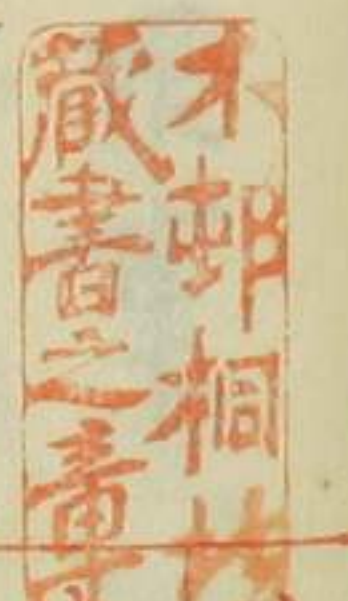 木邨桐
蔵書之章